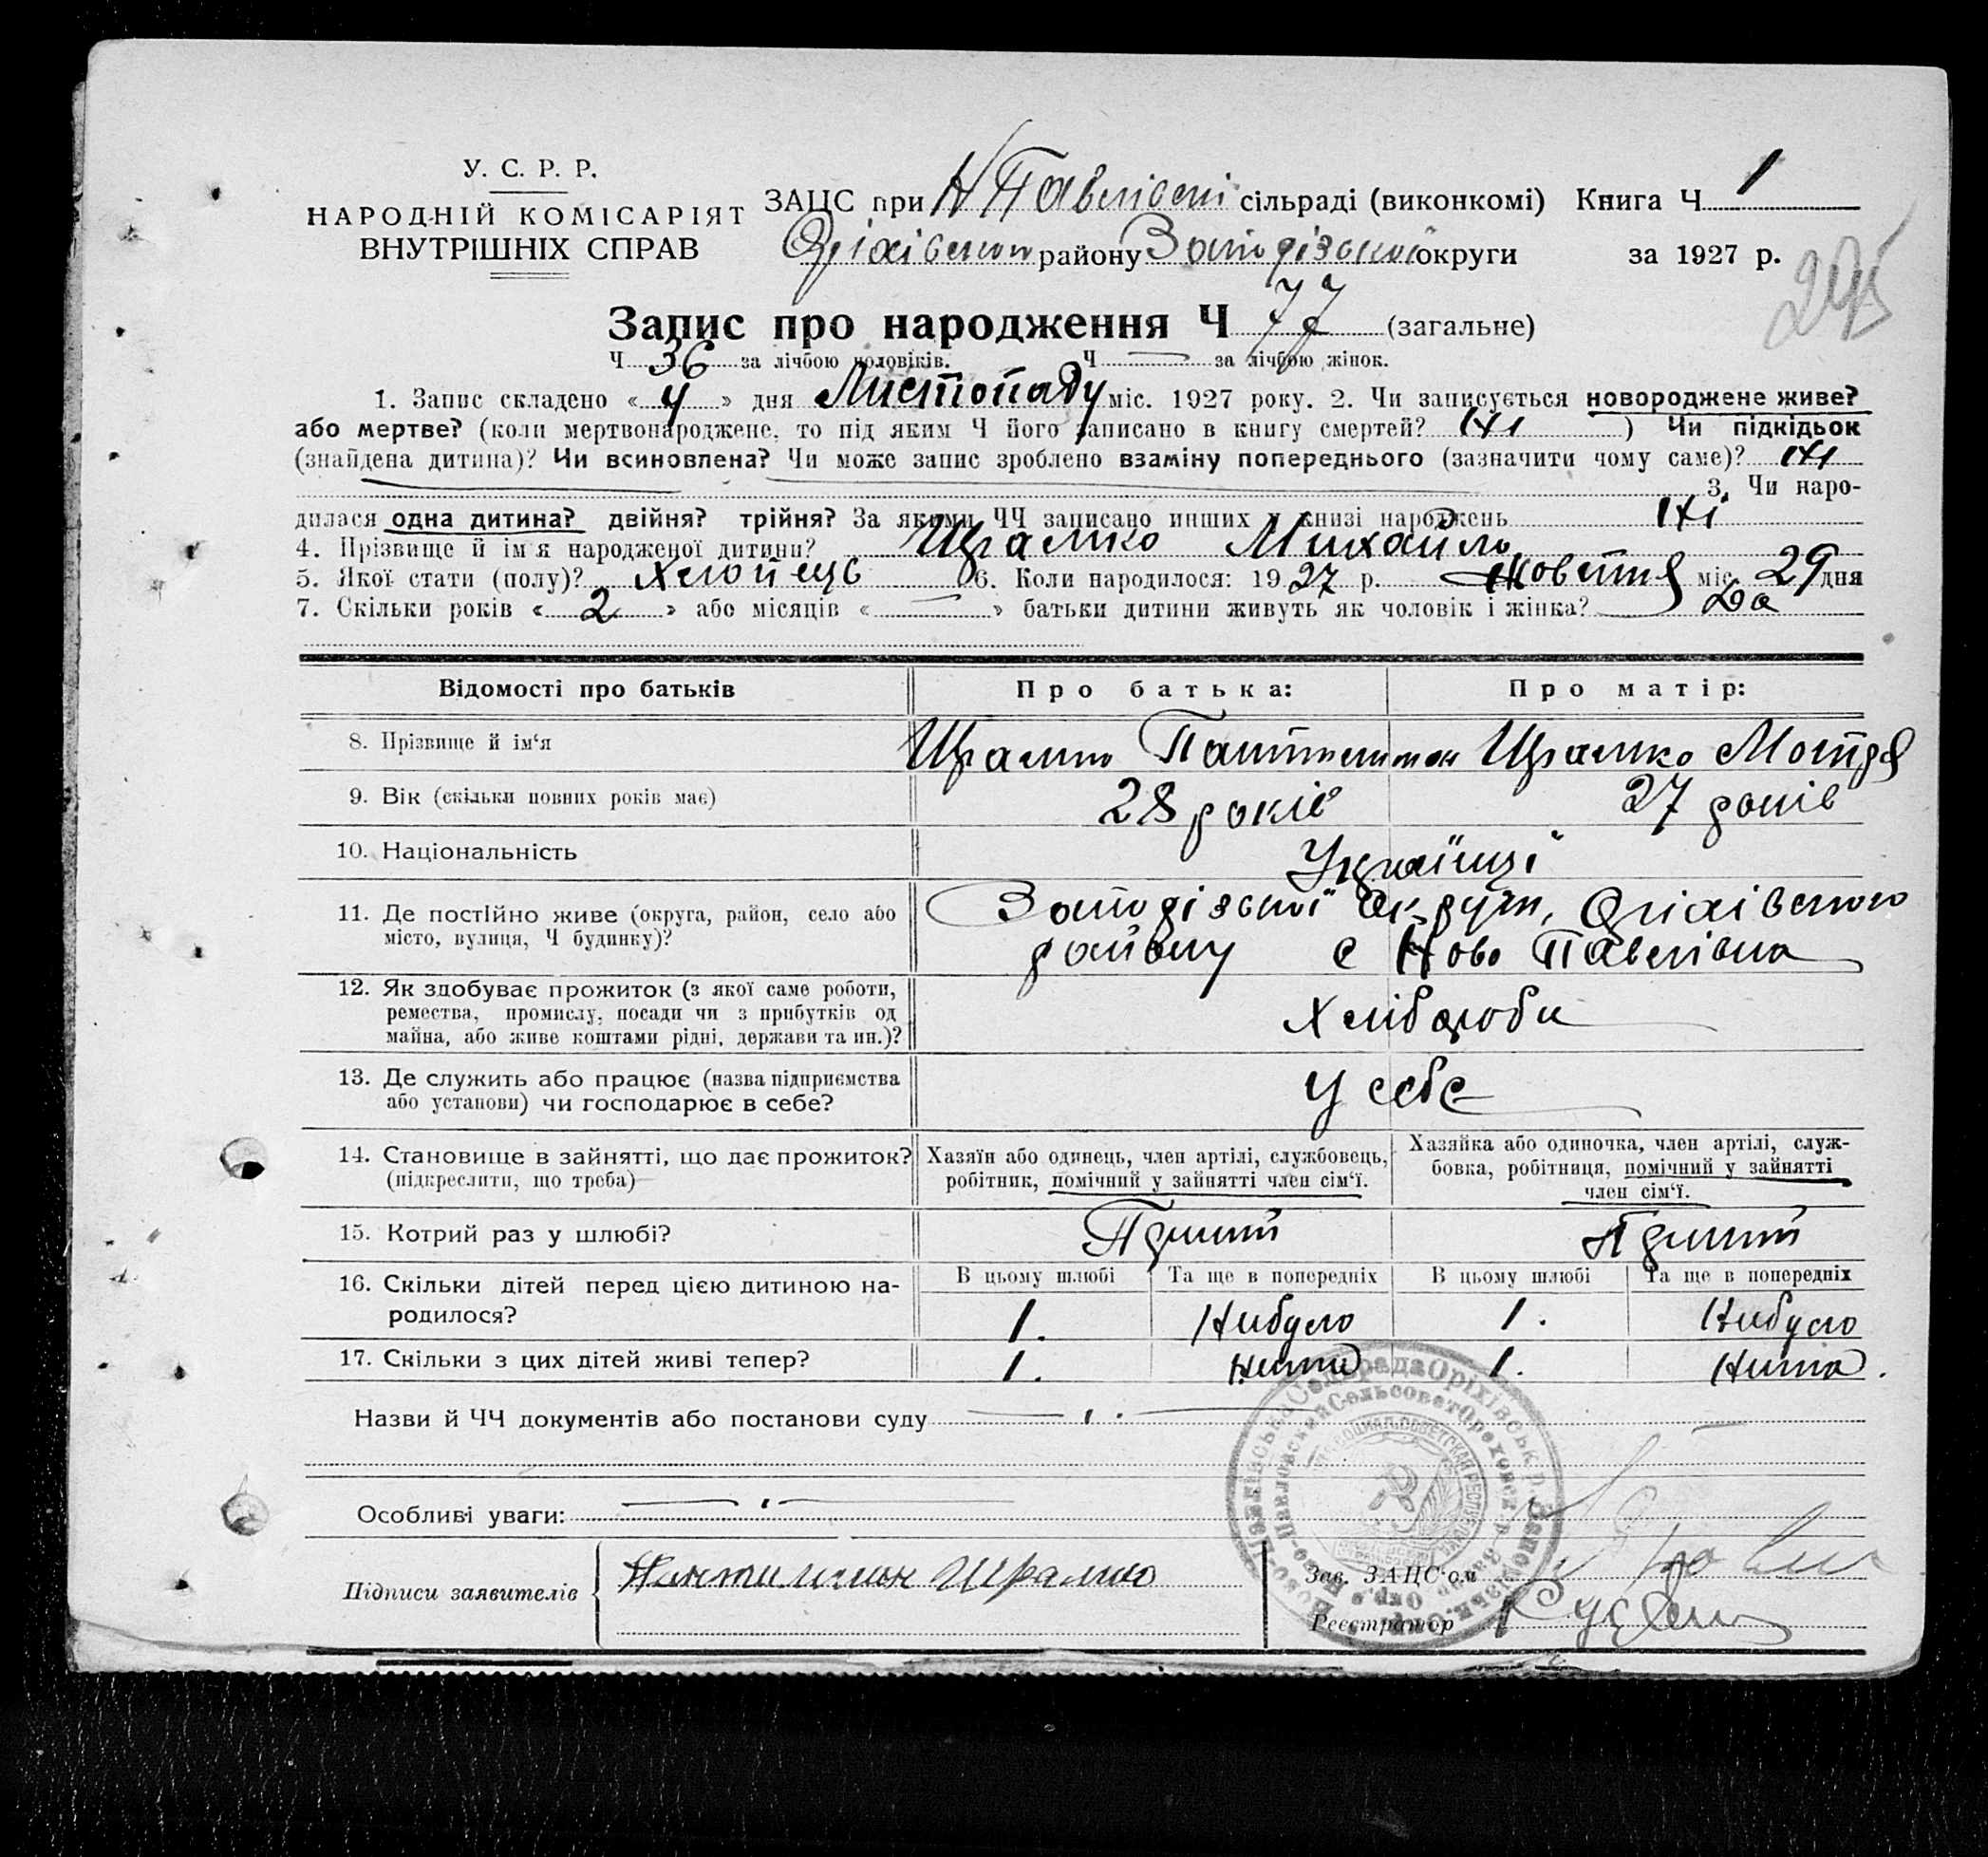 У. С. Р. Р.
НАРОДНІЙ КОМІСАРІЯТ
ВНУТРІШНІХ СПРАВ
ЗАЦС при Н Павлівскі сільраді (виконкомі) Книга Ч 1
Оріхівского району Запорізької округи за 1927 р.
295
Запис про народження Ч 77 (загальне)
Ч 36 за лічбою чоловіків. Ч — за лічбою жінок.
1. Запис складено « 4 » дня Листопаду міс. 1927 року. 2. Чи записується новороджене живе?
або мертве? (коли мертвонароджене, то під яким Ч його записано в книгу смертей? Ні ) Чи підкідьок
(знайдена дитина)? Чи всиновлена? Чи може запис зроблено взаміну попереднього (зазначити чому саме)? Ні
3. Чи наро-
дилася одна дитина? двійня? трійня? За якими ЧЧ записано инших у книзі народжень Ні
4. Прізвище й ім'я народженої дитини? Щрамко Михайло
5. Якої стати (полу)? Хлопець 6. Коли народилося: 1927 р. Жовтня міс. 29 дня
7. Скільки років « 2 » або місяців « — » батьки дитини живуть як чоловік і жінка? Да
Відомості про батьків Про батька: Про матір:
8. Прізвище й ім'я Щрамко Пантилимон Щрамко Мотря
9. Вік (скільки повних років має) 28 років 27 років
10. Національність Українці
11. Де постійно живе (округа, район, село або Запорізької Округи, Оріхівского
місто, вулиця, Ч будинку)? району с Ново Павлівка
12. Як здобуває прожиток (з якої саме роботи,
ремества, промислу, посади чи з прибутків од
майна, або живе коштами рідні, держави та ин.)? Хлібороби
13. Де служить або працює (назва підприємства
або установи) чи господарює в себе? У себе
14. Становище в зайнятті, що дає прожиток?
(підкреслити, що треба)
Хазяїн або одинець, член артілі, службовець,
робітник, помічний у зайнятті член сім'ї.
Хазяйка або одиночка, член артілі, служ-
бовка, робітниця, помічний у зайнятті
член сім'ї.
15. Котрий раз у шлюбі?
16. Скільки дітей перед цією дитиною на-
родилося?
В цьому шлюбі Та ще в попередніх В цьому шлюбі Та ще в попередніх
1. Нибуло 1. Нибуло
17. Скільки з цих дітей живі тепер? 1. Нима 1. Нима.
Назви й ЧЧ документів або постанови суду
Особливі уваги:
Підписи заявителів Пантилимон Щрамко
Зав. ЗАЦС'ом
Реєстратор
Ново-Павлівська Сельрада Оріхівськ. р. Запорізьк. Окр.
Ново-Павловский Сельсовет Ореховск. р. Запор. Окр.